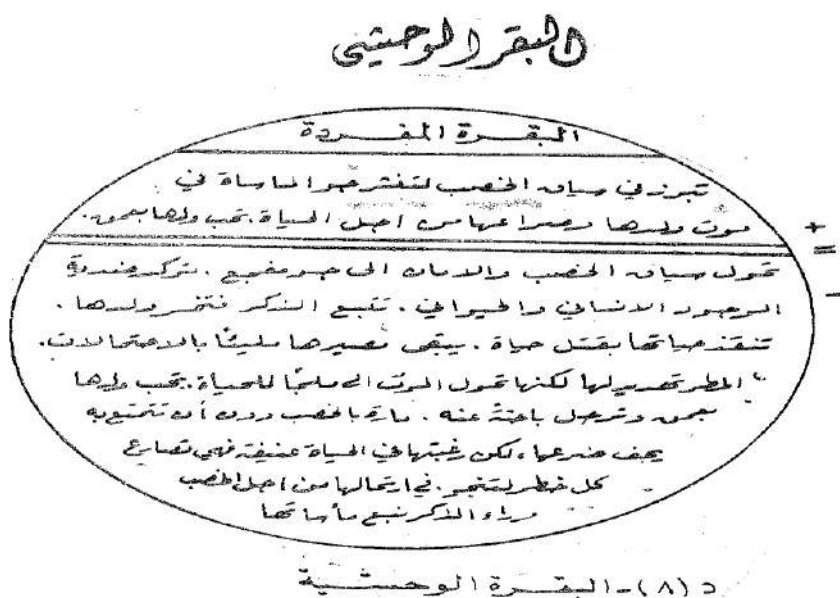 البقر الوحشي
البقرة المفردة
تبرز في سياق الخصب لتنشر جو الماساة في
موت ولدها وصراعها من اجل الحياة. تحب ولدها بعمق.
+
=
-
تحول سياق الخصب والامان الى جو مفجع. تتركز ضدية
الوجود الانساني والحيواني. تتبع الذكر فتخسر ولدها.
تنقذ حياتها بقتل حياة. يبقى مصيرها مليئًا بالاحتمالات.
المطر تهديد لها لكنها تحول الموت الى ملجأ للحياة. تحب ولدها
بعمق وترحل باحثة عنه. مارة بالخصب دون أن تتمتع به
يجف ضرعها، لكن رغبتها في الحياة عنيفة فهي تصارع
كل خطر لتنجو. في ارتحالها من اجل الخصب
وراء الذكر ينبع مأساتها
د (٨) - البقرة الوحشية